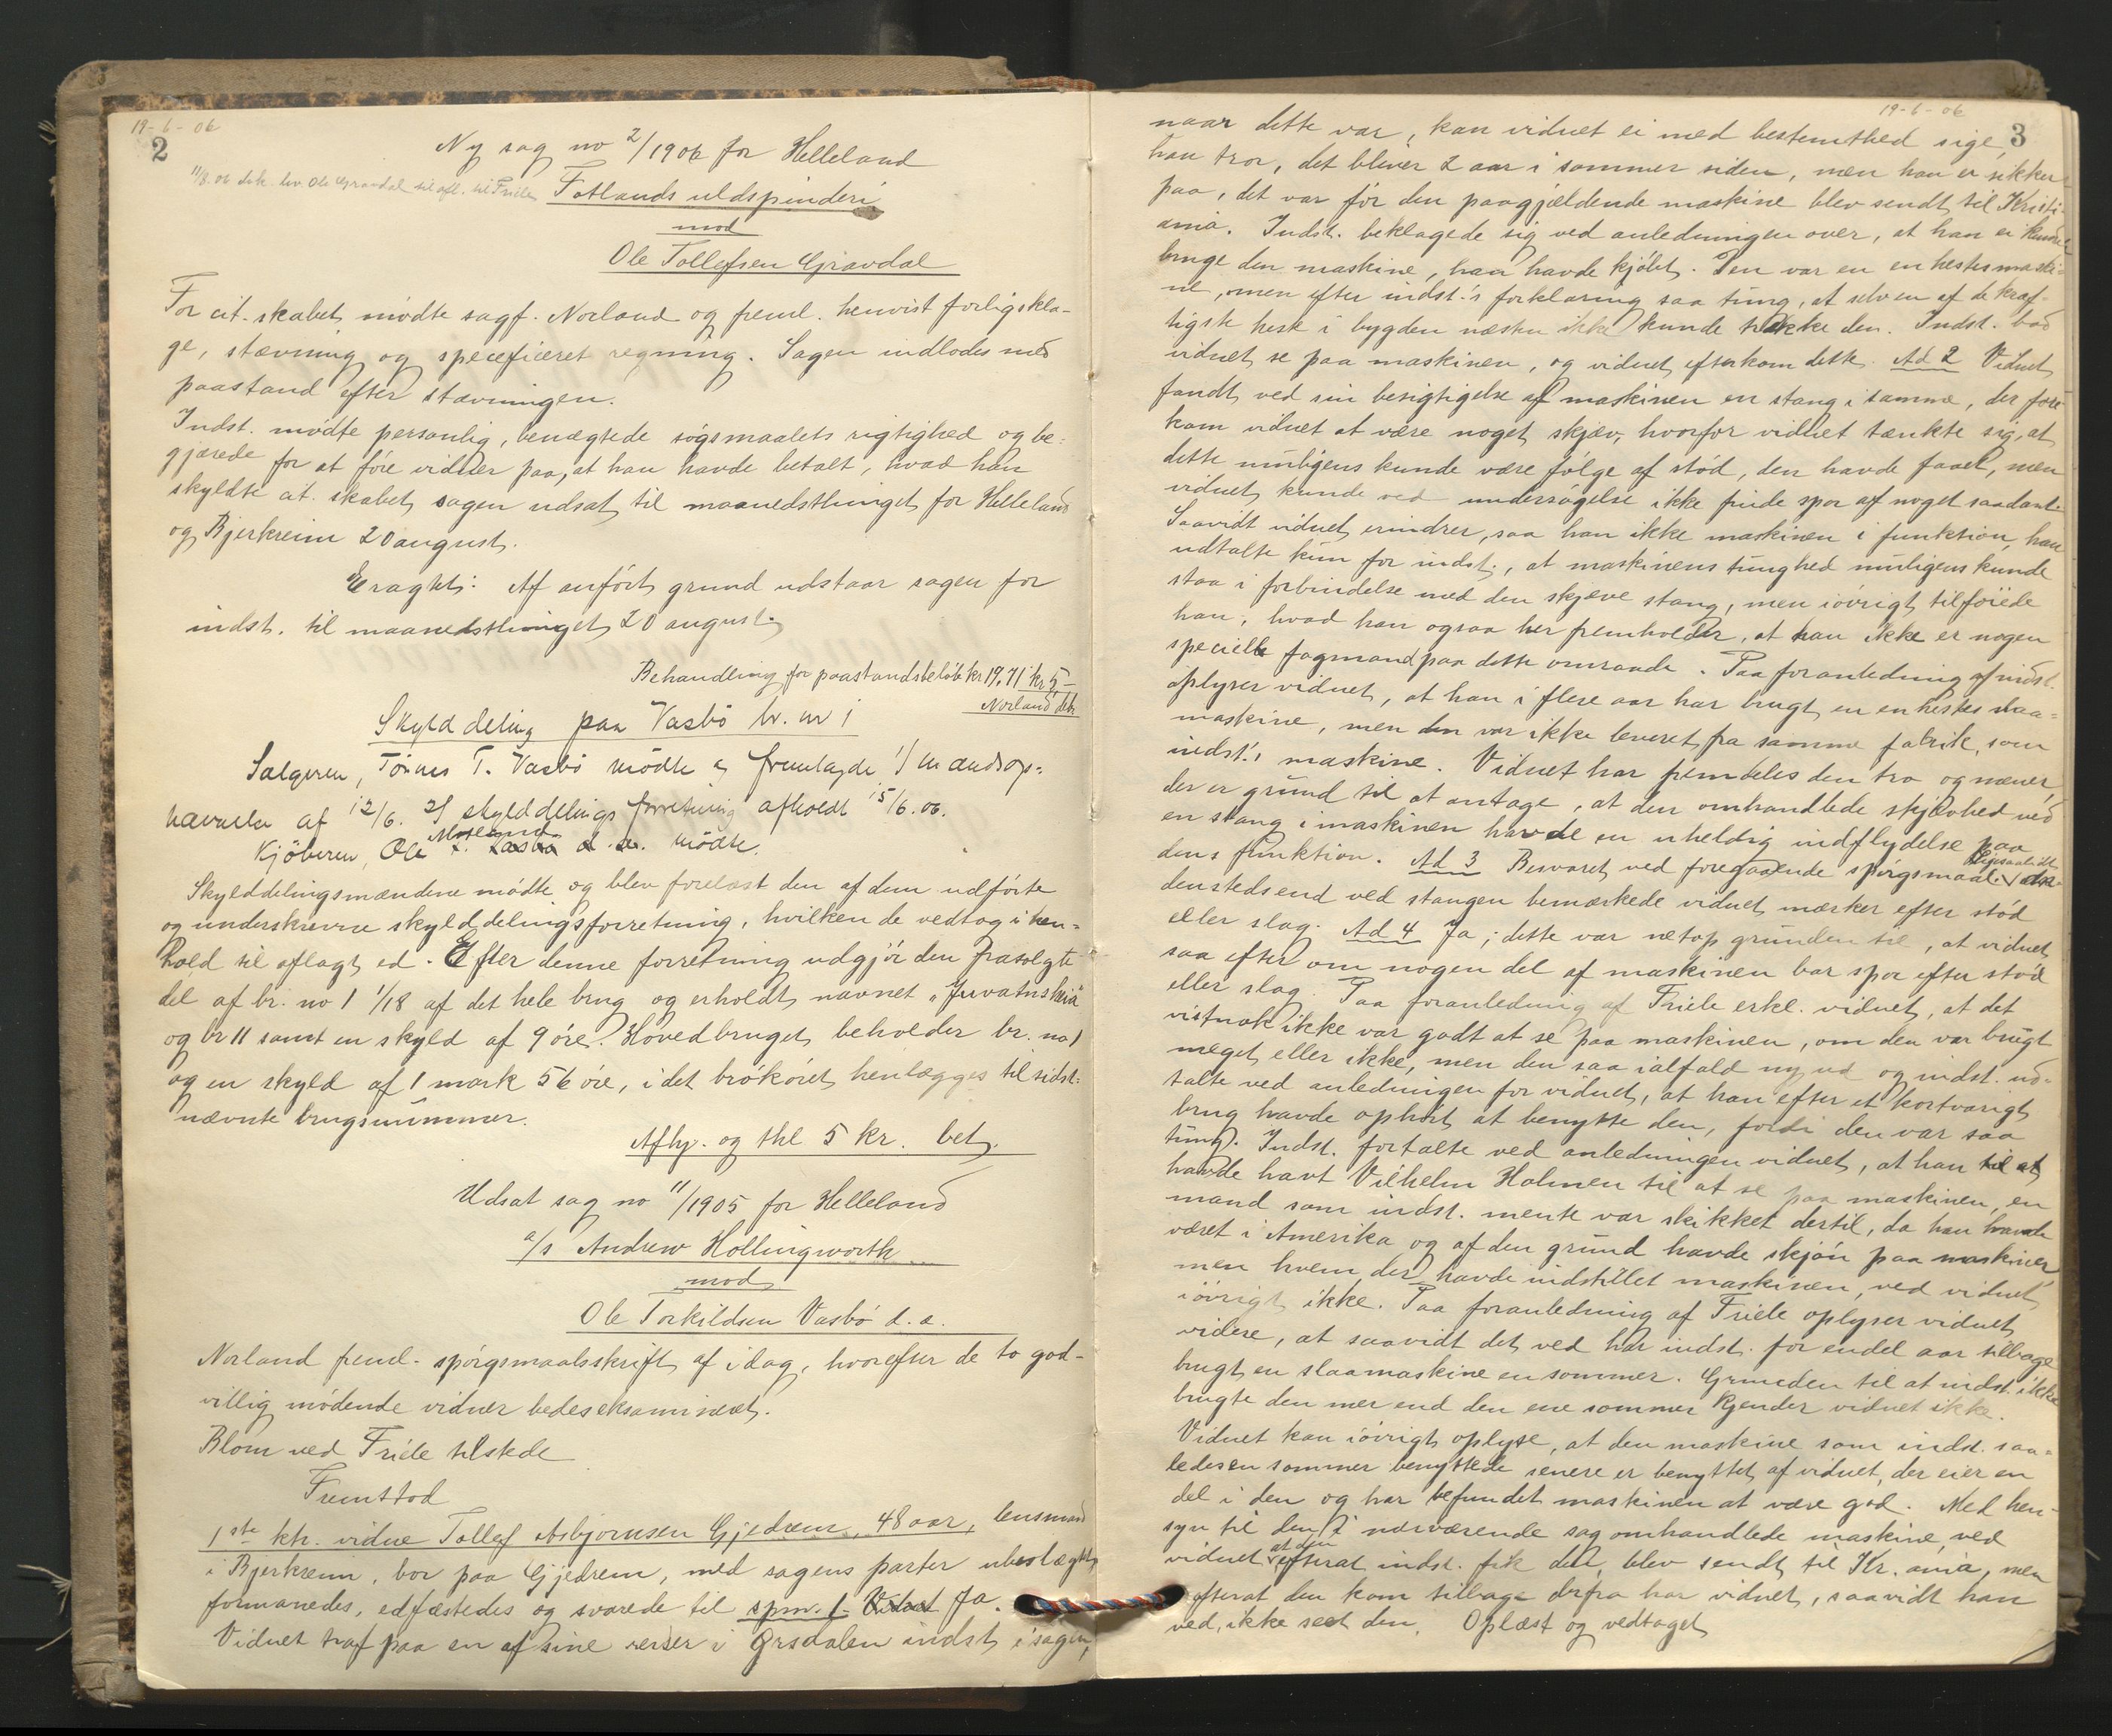 19-6-06
2
Ny sag no 2/1906 for Helleland
11/8.06 dok. lev. Ole Gravdal til afl. til Friele
Fotlands uldspinderi
mod
Ole Tollefsen Gravdal
For cit. skabet mødte sagf. Norland og freml. henvist forligskla-
ge, stævning og specificeret regning. Sagen indlodes med
paastand efter stævningen.
Indst. mødte personlig, benægtede søgsmaalets rigtighed og be-
gjærede for at føre vidner paa, at han havde betalt, hvad han
skyldte cit. skabet sagen udsat til maanedsthinget for Helleland
og Bjerkreim 20 august.
Eragtet: Af anført grund udstaar sagen for
indst. til maanedsthinget 20 august.
Behandling for paastandsbeløb kr 19,71 kr 5 -
Norland deb.
Skylddeling paa Vasbø br. nr 1
Sælgeren, Tønnes T. Vasbø mødte og fremlagde 1) mandsop-
nævnelse af 12/6. 2) skylddelingsforretning afholdt 15/6.06.
Kjøberen, Ole Moland mødte.
Skylddelingsmændene mødte og blev forelæst den af dem udførte
og underskrevne skylddelingsforretning, hvilken de vedtog i hen-
hold til aflagt ed. Efter denne forretning udgjør den frasolgte
del af br. no 1 1/18 af det hele brug og erholdt navnet "Juvatnslia"
og br 11 samt en skyld af 9 øre. Hovedbruget beholder br. no 1
og en skyld af 1 mark 56 øre, idet brøkøret henlægges til sidst-
nævnte brugsnummer.
Afhj. og thl 5 kr. bet.
Udsat sag no 11/1905 for Helleland
a/s Andrew Hollingworth
mod
Ole Torkildsen Vasbø d. a.
Norland freml. spørgsmaalsskrift af idag, hvorefter de to god-
villig mødende vidner bedes eksamineret.
Blom ved Friele tilstede
Fremstod
1ste kth. vidne Tollef Asbjørnsen Gjedrem, 48 aar, lensmand
i Bjerkreim, bor paa Gjedrem, med sagens parter ubeslægtet
formanedes, edfæstedes og svarede til spm. 1. Vidnet Ja.
Vidnet traf paa en af sine reiser i Ørsdalen indst. i sagen,
19-6-06
3
naar dette var, kan vidnet ei med bestemthed sige,
han tror, det bliver 2 aar i sommer siden, men han er sikker
paa, det var før den paagjældende maskine blev sendt til Kristi-
ania. Indst. beklagede sig ved anledningen over, at han ei kunde
bruge den maskine, han havde kjøbt. Den var en enhestes maski-
ne, men efter indst.'s forklaring saa tung, at selv en af de kraf-
tigste hest i bygden næsten ikke kunde trække den. Indst. bad
vidnet se paa maskinen, og vidnet efterkom dette. Ad 2 Vidnet
fandt ved sin besigtigelse af maskinen en stang i samme, der fore-
kom vidnet at være noget skjæv, hvorfor vidnet tænkte sig, at
dette muligens kunde være følge af stød, den havde faaet, men
vidnet kunde ved undersøgelse ikke finde spor af noget saadant.
Saavidt vidnet erindrer, saa han ikke maskinen i funktion, han
udtalte kun for indst., at maskinens tunghed muligens kunde
staa i forbindelse med den skjæve stang, men iøvrigt tilføiede
han, hvad han ogsaa her fremholder, at han ikke er nogen
specielle fagmand paa dette omraade. Paa foranledning af indst.
oplyser vidnet, at han i flere aar har brugt en enhestes slaa-
maskine, men den var ikke leveret fra samme fabrik, som
indst.'s maskine. Vidnet har fremdeles den tro og mener,
der er grund til at antage, at den omhandlede skjævhed ved
en stang i maskinen havde en uheldig indflydelse paa
dens funktion. Ad 3 Besvaret ved foregaaende spørgsmaal. Ligesaalidt
densteds end ved stangen bemærkede vidnet mærker efter stød
eller slag. Ad 4 Ja; dette var netop grunden til, at vidnet
saa efter om nogen del af maskinen bar spor efter stød
eller slag. Paa foranledning af Friele erkl. vidnet, at det
vistnok ikke var godt at se paa maskinen, om den var brugt
meget eller ikke, men den saa ialfald ny ud og indst. ud-
talte ved anledningen for vidnet, at han efter et kortvarigt
brug havde ophørt at benytte den, fordi den var saa
tung. Indst. fortalte ved anledningen vidnet, at han til at
havde havt Vilhelm Holmen til at se paa maskinen, en
mand som indst. mente var skikket dertil, da han havde
været i Amerika og af den grund havde skjøn paa maskiner,
men hvem, der havde indstillet maskinen, ved vidnet
iøvrigt ikke. Paa foranledning af Friele oplyser vidnet
videre, at saavidt det ved har indst. for endel aar tilbage
brugt en slaamaskine en sommer. Grunden til at indst. ikke
brugte den mer end den ene sommer kjender vidnet ikke.
Vidnet kan iøvrigt oplyse, at den maskine som indst. saa-
ledes en sommer benyttede senere er benyttet af vidnet, der eier en
del i den og har befundet maskinen at være god. Med hen-
syn til den i nærværende sag omhandlede maskine, ved
vidnet at den efterat indst. fik den, blev sendt til Kr.ania, men
efterat den kom tilbage derfra har vidnet, saavidt han
ved, ikke seet den. Oplæst og vedtaget